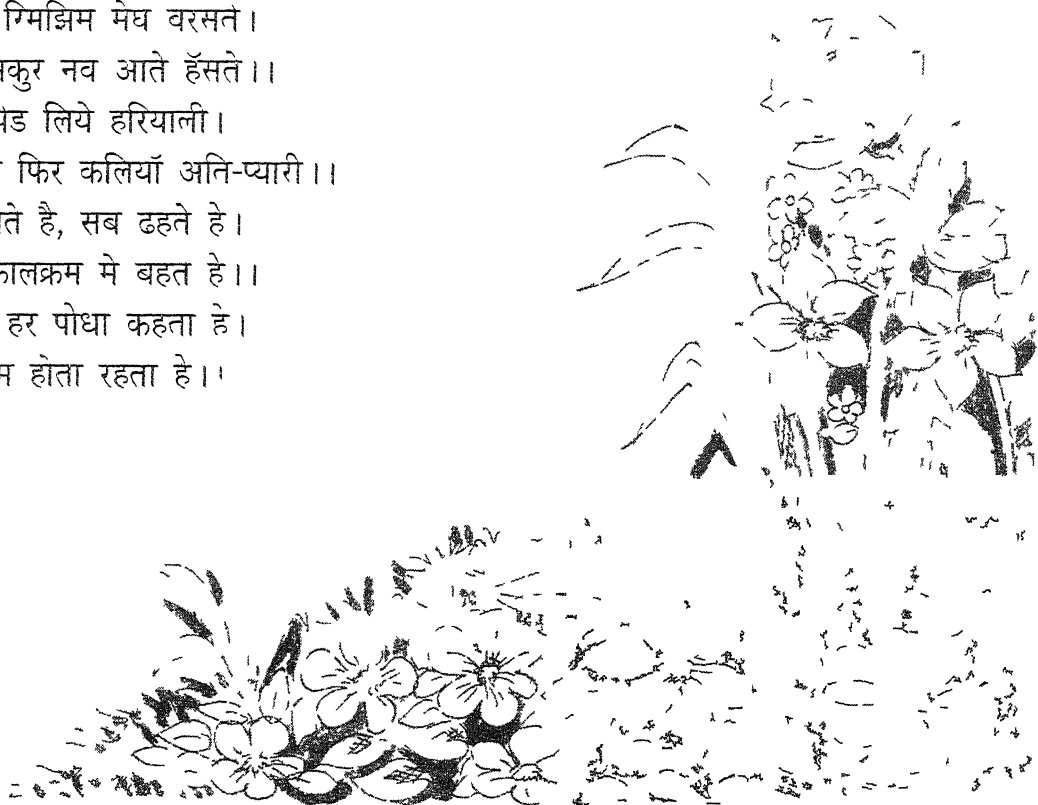 रिमझिम मेघ वरसते।
नव आते हॅसते।।
लिये हरियाली।
फिर कलियॉ अति-प्यारी।।
है, सब ढहते हे।
मे बहत हे।।
हर पोधा कहता हे।
होता रहता हे।।